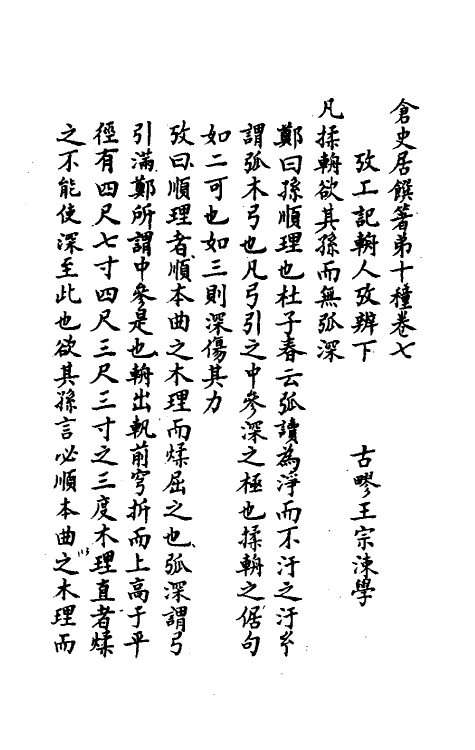 倉史居饌著弟十種卷七
攷工記輈人攷辨下 古疁王宗涑學
凡揉輈欲其孫而無弧深
鄭曰孫順理也杜子春云弧讀為淨而不汙之汙玄
謂弧木弓也凡弓引之中參深之極也揉輈之倨句
如二可也如三則深傷其力
攷曰順理者順本曲之木理而煣屈之也弧深謂弓
引滿鄭所謂中參是也輈出軓前穹折而上高于平
徑有四尺七寸四尺三尺三寸之三度木理直者煣
之不能使深至此也欲其孫言必順本曲之木理而